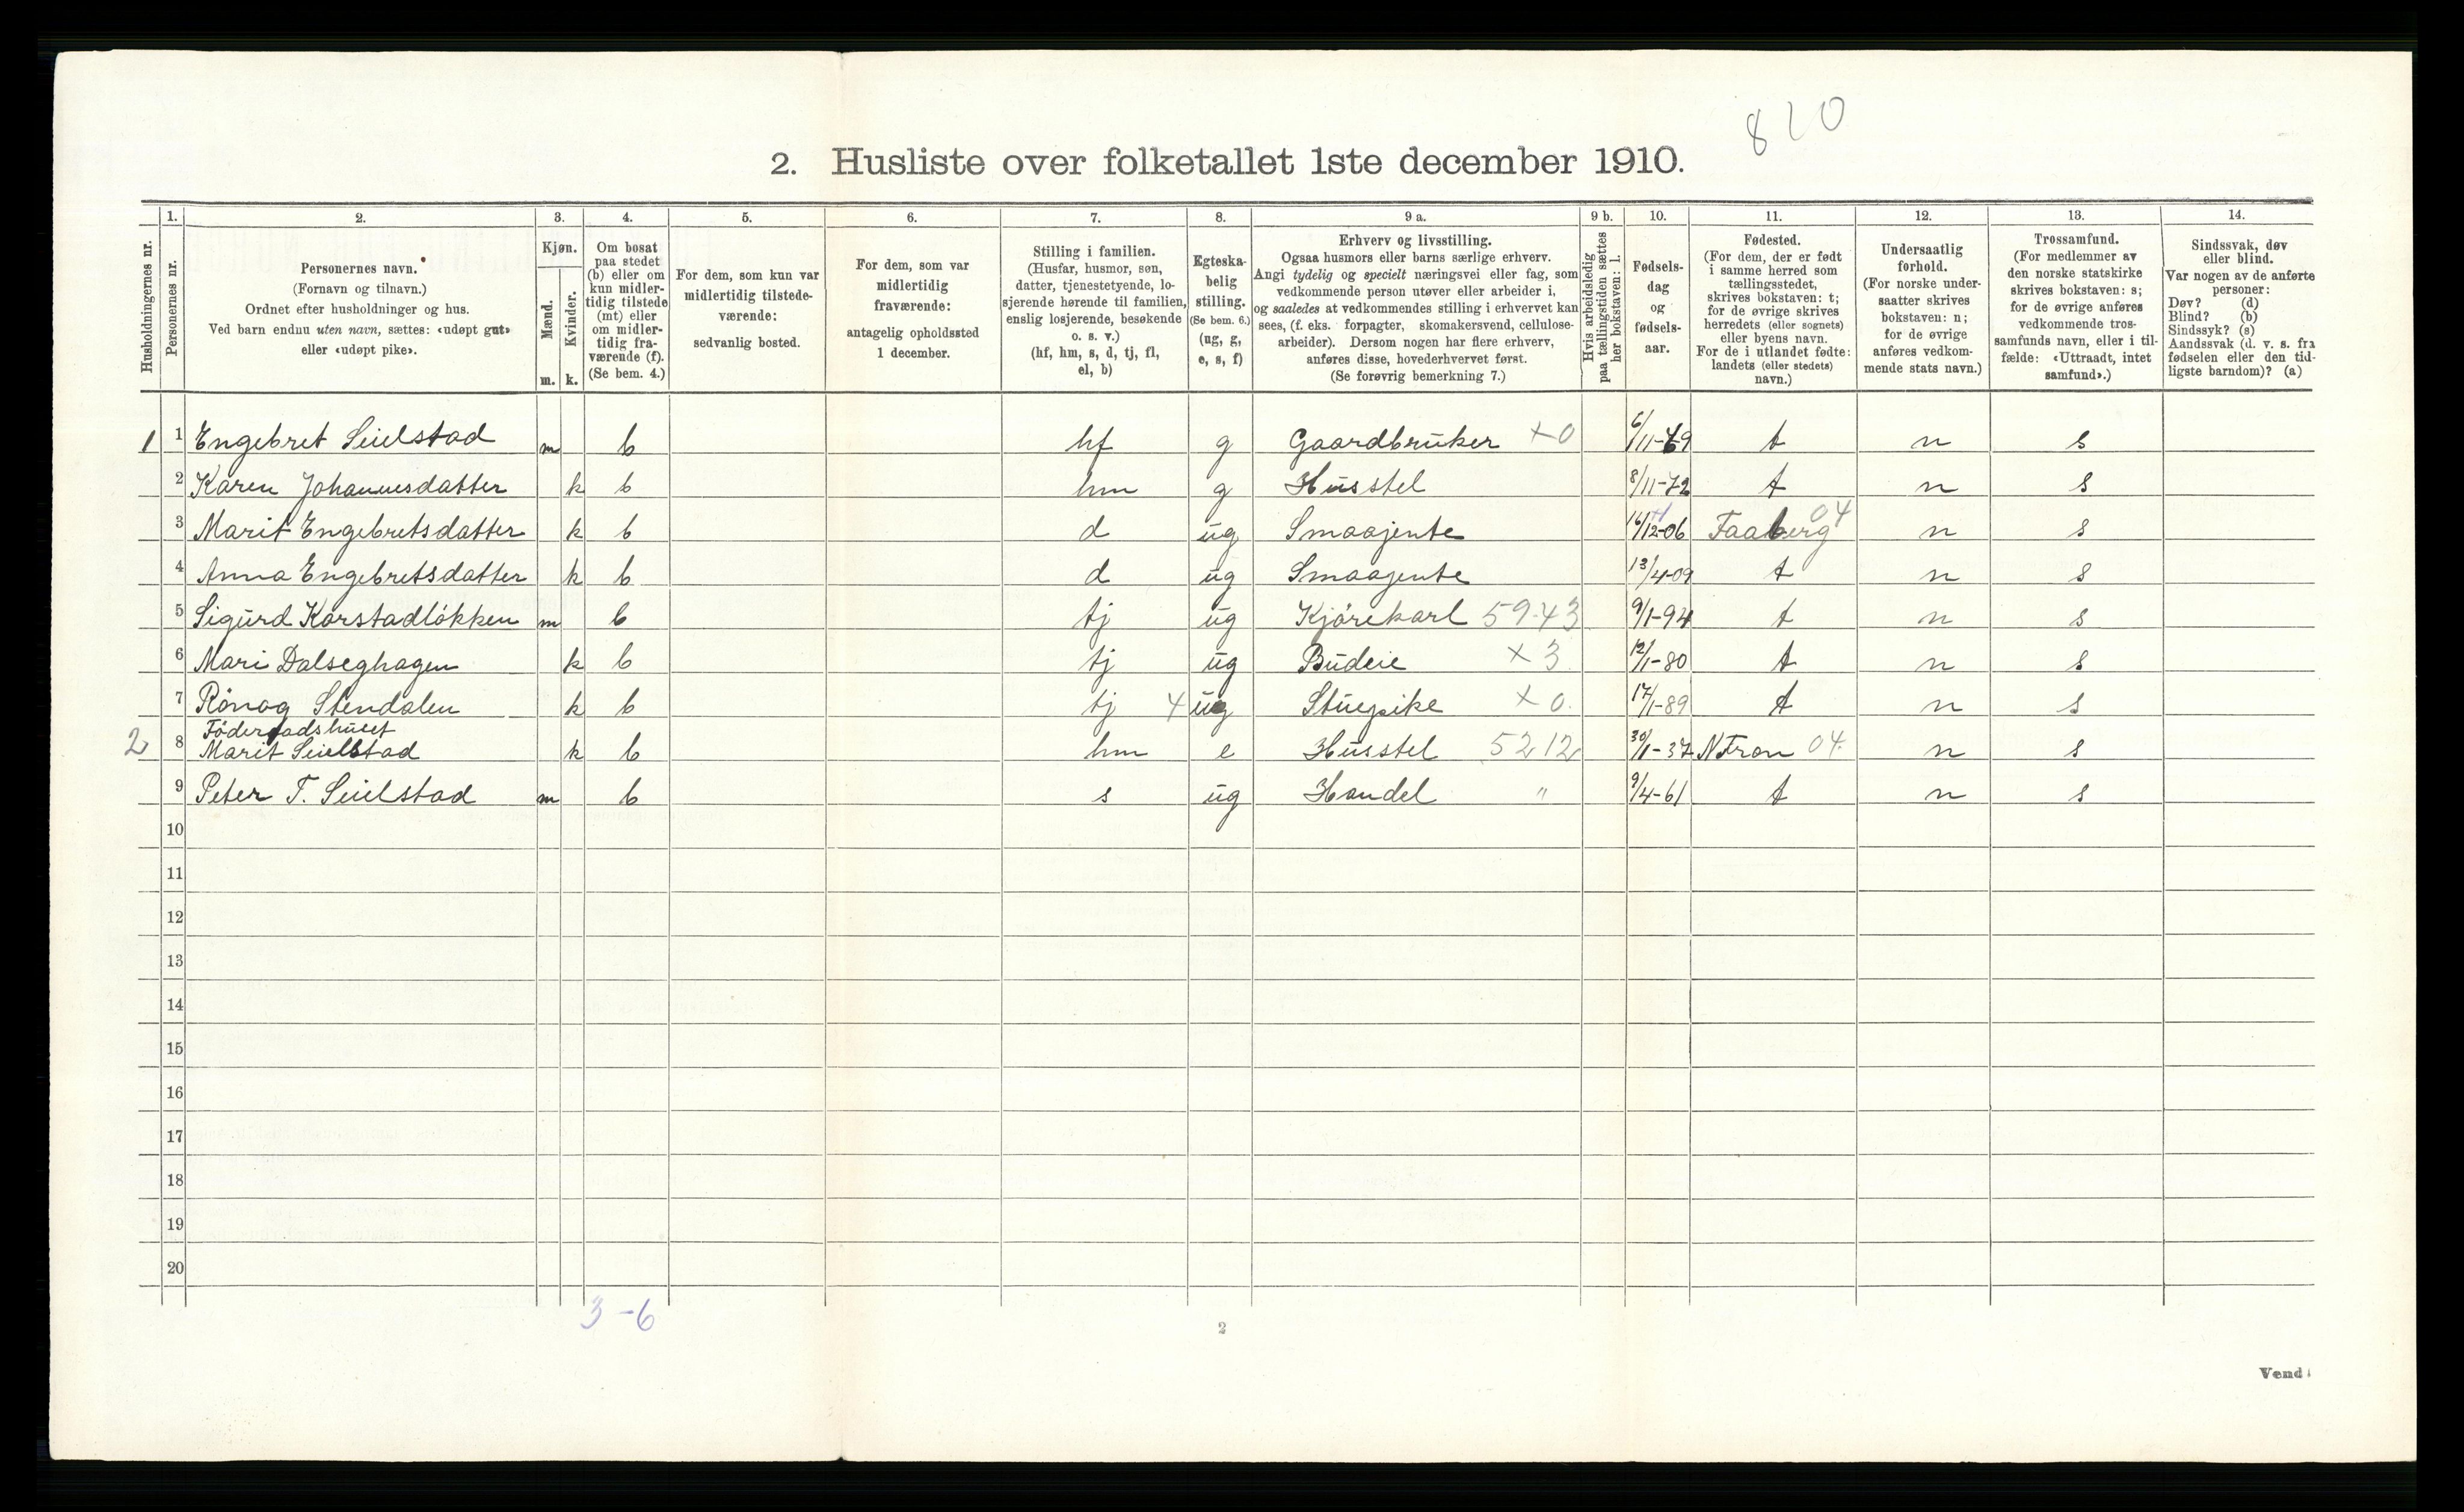 820
2. Husliste over folketallet 1ste december 1910.
Husholdningernes nr.
1.
Personernes nr.
2.
Personernes navn.
(Fornavn og tilnavn.)
Ordnet efter husholdninger og hus.
Ved barn endnu uten navn, sættes: «udøpt gut»
eller «udøpt pike».
3.
Kjøn.
Mænd.
Kvinder.
m. k.
4.
Om bosat
paa stedet
(b) eller om
kun midler-
tidig tilstede
(mt) eller
om midler-
tidig fra-
værende (f).
(Se bem. 4.)
5.
For dem, som kun var
midlertidig tilstede-
værende:
sedvanlig bosted.
6.
For dem, som var
midlertidig
fraværende:
antagelig opholdssted
1 december.
7.
Stilling i familien.
(Husfar, husmor, søn,
datter, tjenestetyende, lo-
sjerende hørende til familien,
enslig losjerende, besøkende
o. s. v.)
(hf, hm, s, d, tj, fl,
el, b)
8.
Egteska-
belig
stilling.
(Se bem. 6.)
(ug, g,
e, s, f)
9 a.
Erhverv og livsstilling.
Ogsaa husmors eller barns særlige erhverv.
Angi tydelig og specielt næringsvei eller fag, som
vedkommende person utøver eller arbeider i,
og saaledes at vedkommendes stilling i erhvervet kan
sees, (f. eks. forpagter, skomakersvend, cellulose-
arbeider). Dersom nogen har flere erhverv,
anføres disse, hovederhvervet først.
(Se forøvrig bemerkning 7.)
9 b.
Hvis arbeidsledig
paa tællingstiden sættes
her bokstaven: l.
10.
Fødsels-
dag
og
fødsels-
aar.
11.
Fødested.
(For dem, der er født
i samme herred som
tællingsstedet,
skrives bokstaven: t;
for de øvrige skrives
herredets (eller sognets)
eller byens navn.
For de i utlandet fødte:
landets (eller stedets)
navn.)
12.
Undersaatlig
forhold.
(For norske under-
saatter skrives
bokstaven: n;
for de øvrige
anføres vedkom-
mende stats navn.)
13.
Trossamfund.
(For medlemmer av
den norske statskirke
skrives bokstaven: s;
for de øvrige anføres
vedkommende tros-
samfunds navn, eller i til-
fælde: «Uttraadt, intet
samfund».)
14.
Sindssvak, døv
eller blind.
Var nogen av de anførte
personer:
Døv? (d)
Blind? (b)
Sindssyk? (s)
Aandssvak (d. v. s. fra
fødselen eller den tid-
ligste barndom)? (a)
1 1 Engebret Seielstad m b hf g Gaardbruker ×0 6/11-69 t n s
2 Karen Johannesdatter k b hm g Husstel 8/11-72 t n s
3 Marit Engebretsdatter k b d ug Smaajente 16/12-06 Faaberg 04 n s
4 Anna Engebretsdatter k b d ug Smaajente 13/4-09 t n s
5 Sigurd Korstadløkken m b tj ug Kjørekarl 59.43 9/1-94 t n s
6 Mari Dalseghagen k b tj ug Budeie ×3 12/1-80 t n s
7 Rønog Stendalen k b tj 4 ug Stuepike ×0. 17/1-89 t n s
Føderaadshuset
2 8 Marit Seielstad k b hm e Husstel 5212 30/1-37 N Fron 04. n s
9 Peter T. Seielstad m b s ug Handel " 9/4-61 t n s
10
11
12
13
14
15
16
17
18
19
20
3-6
2
Vend